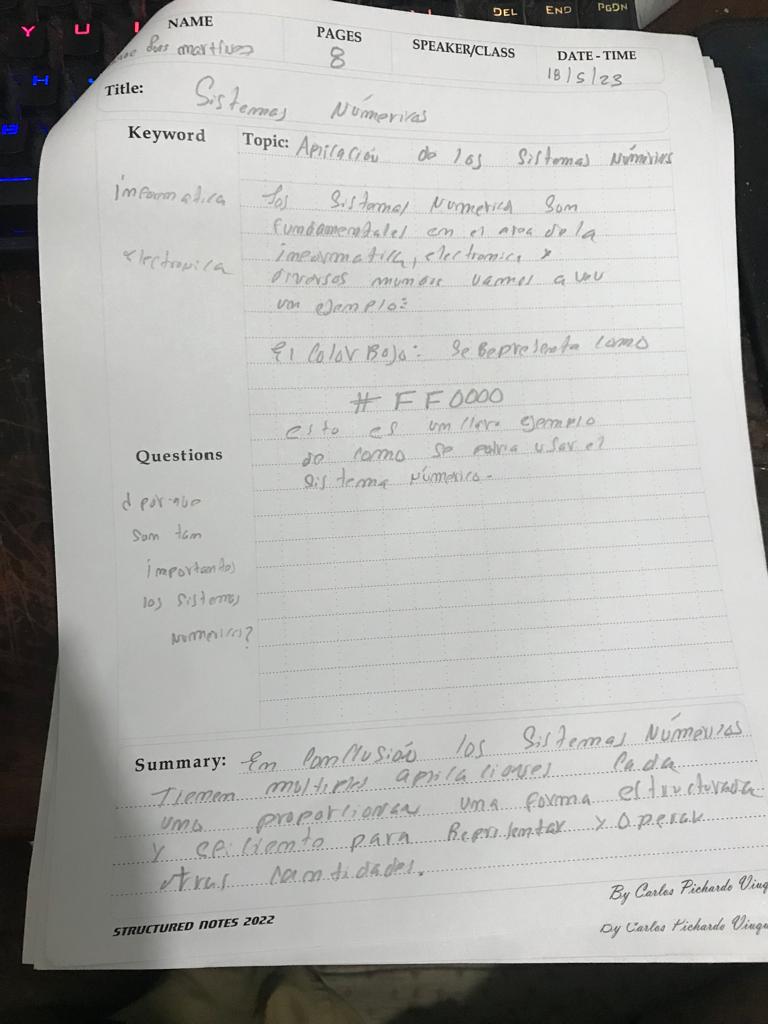 DEL END PGDN
Y U I
H
NAME PAGES SPEAKER/CLASS DATE - TIME
martines 8 18/5/23
Title: Sistemas Númericos
Keyword Topic: Aplicación de los Sistemas Númericos
informatica Los Sistemas Numerica Son
fundamentales en el area de la
electronica informatica, electronica y
diversos mundos vamos a ver
un ejemplo:
El Color Rojo: Se Representa como
# FF0000
esto es un claro ejemplo
Questions de como se podria usar el
Sistema Númerico.
¿ por que
Son tan
importantes
los Sistemas
numericos?
Summary: En Conclusión los Sistemas Númericos
Tienen multiples aplicaciones Cada
uno proporciona una forma estructurada
y eficiente para Representar y Operar
otras Cantidades.
STRUCTURED NOTES 2022
By Carlos Pichardo Viuq
By Carlos Pichardo Viuq